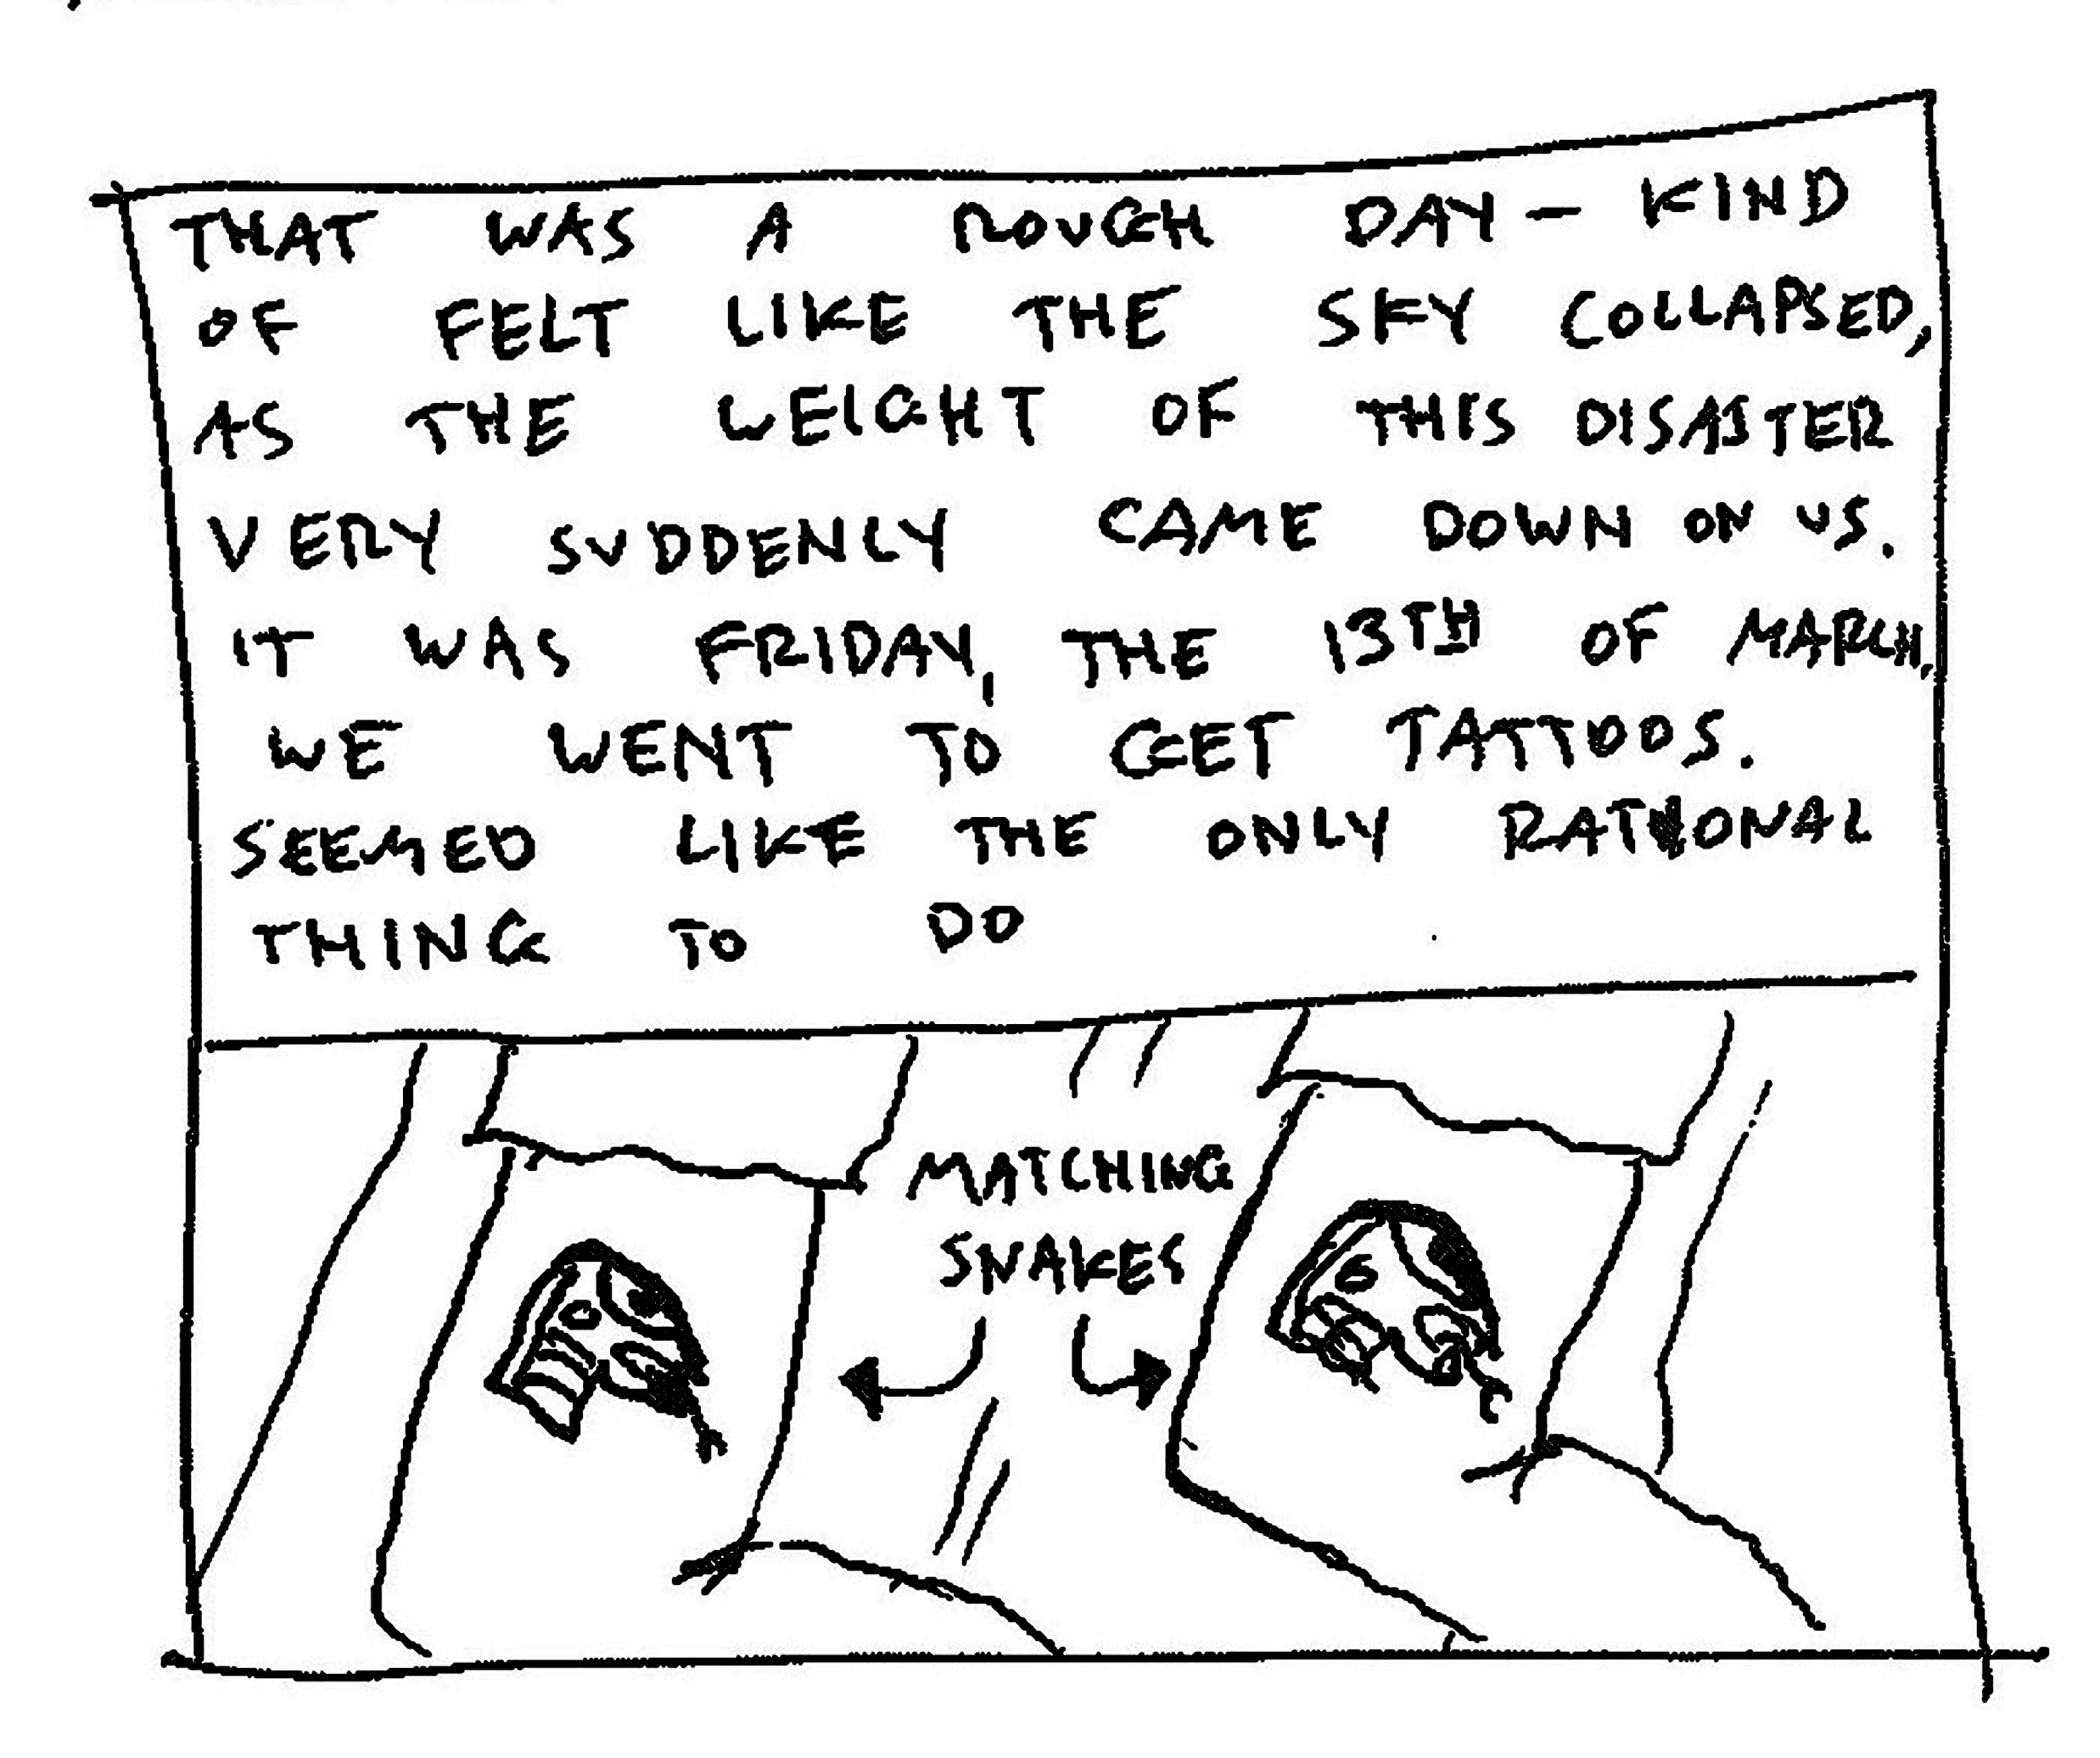 THAT WAS A ROUGH DAY – KIND
OF FELT LIKE THE SKY COLLAPSED,
AS THE WEIGHT OF THIS DISASTER
VERY SUDDENLY CAME DOWN ON US.
IT WAS FRIDAY, THE 13TH OF MARCH.
WE WENT TO GET TATTOOS.
SEEMED LIKE THE ONLY RATIONAL
THING TO DO
MATCHING
SNAKES